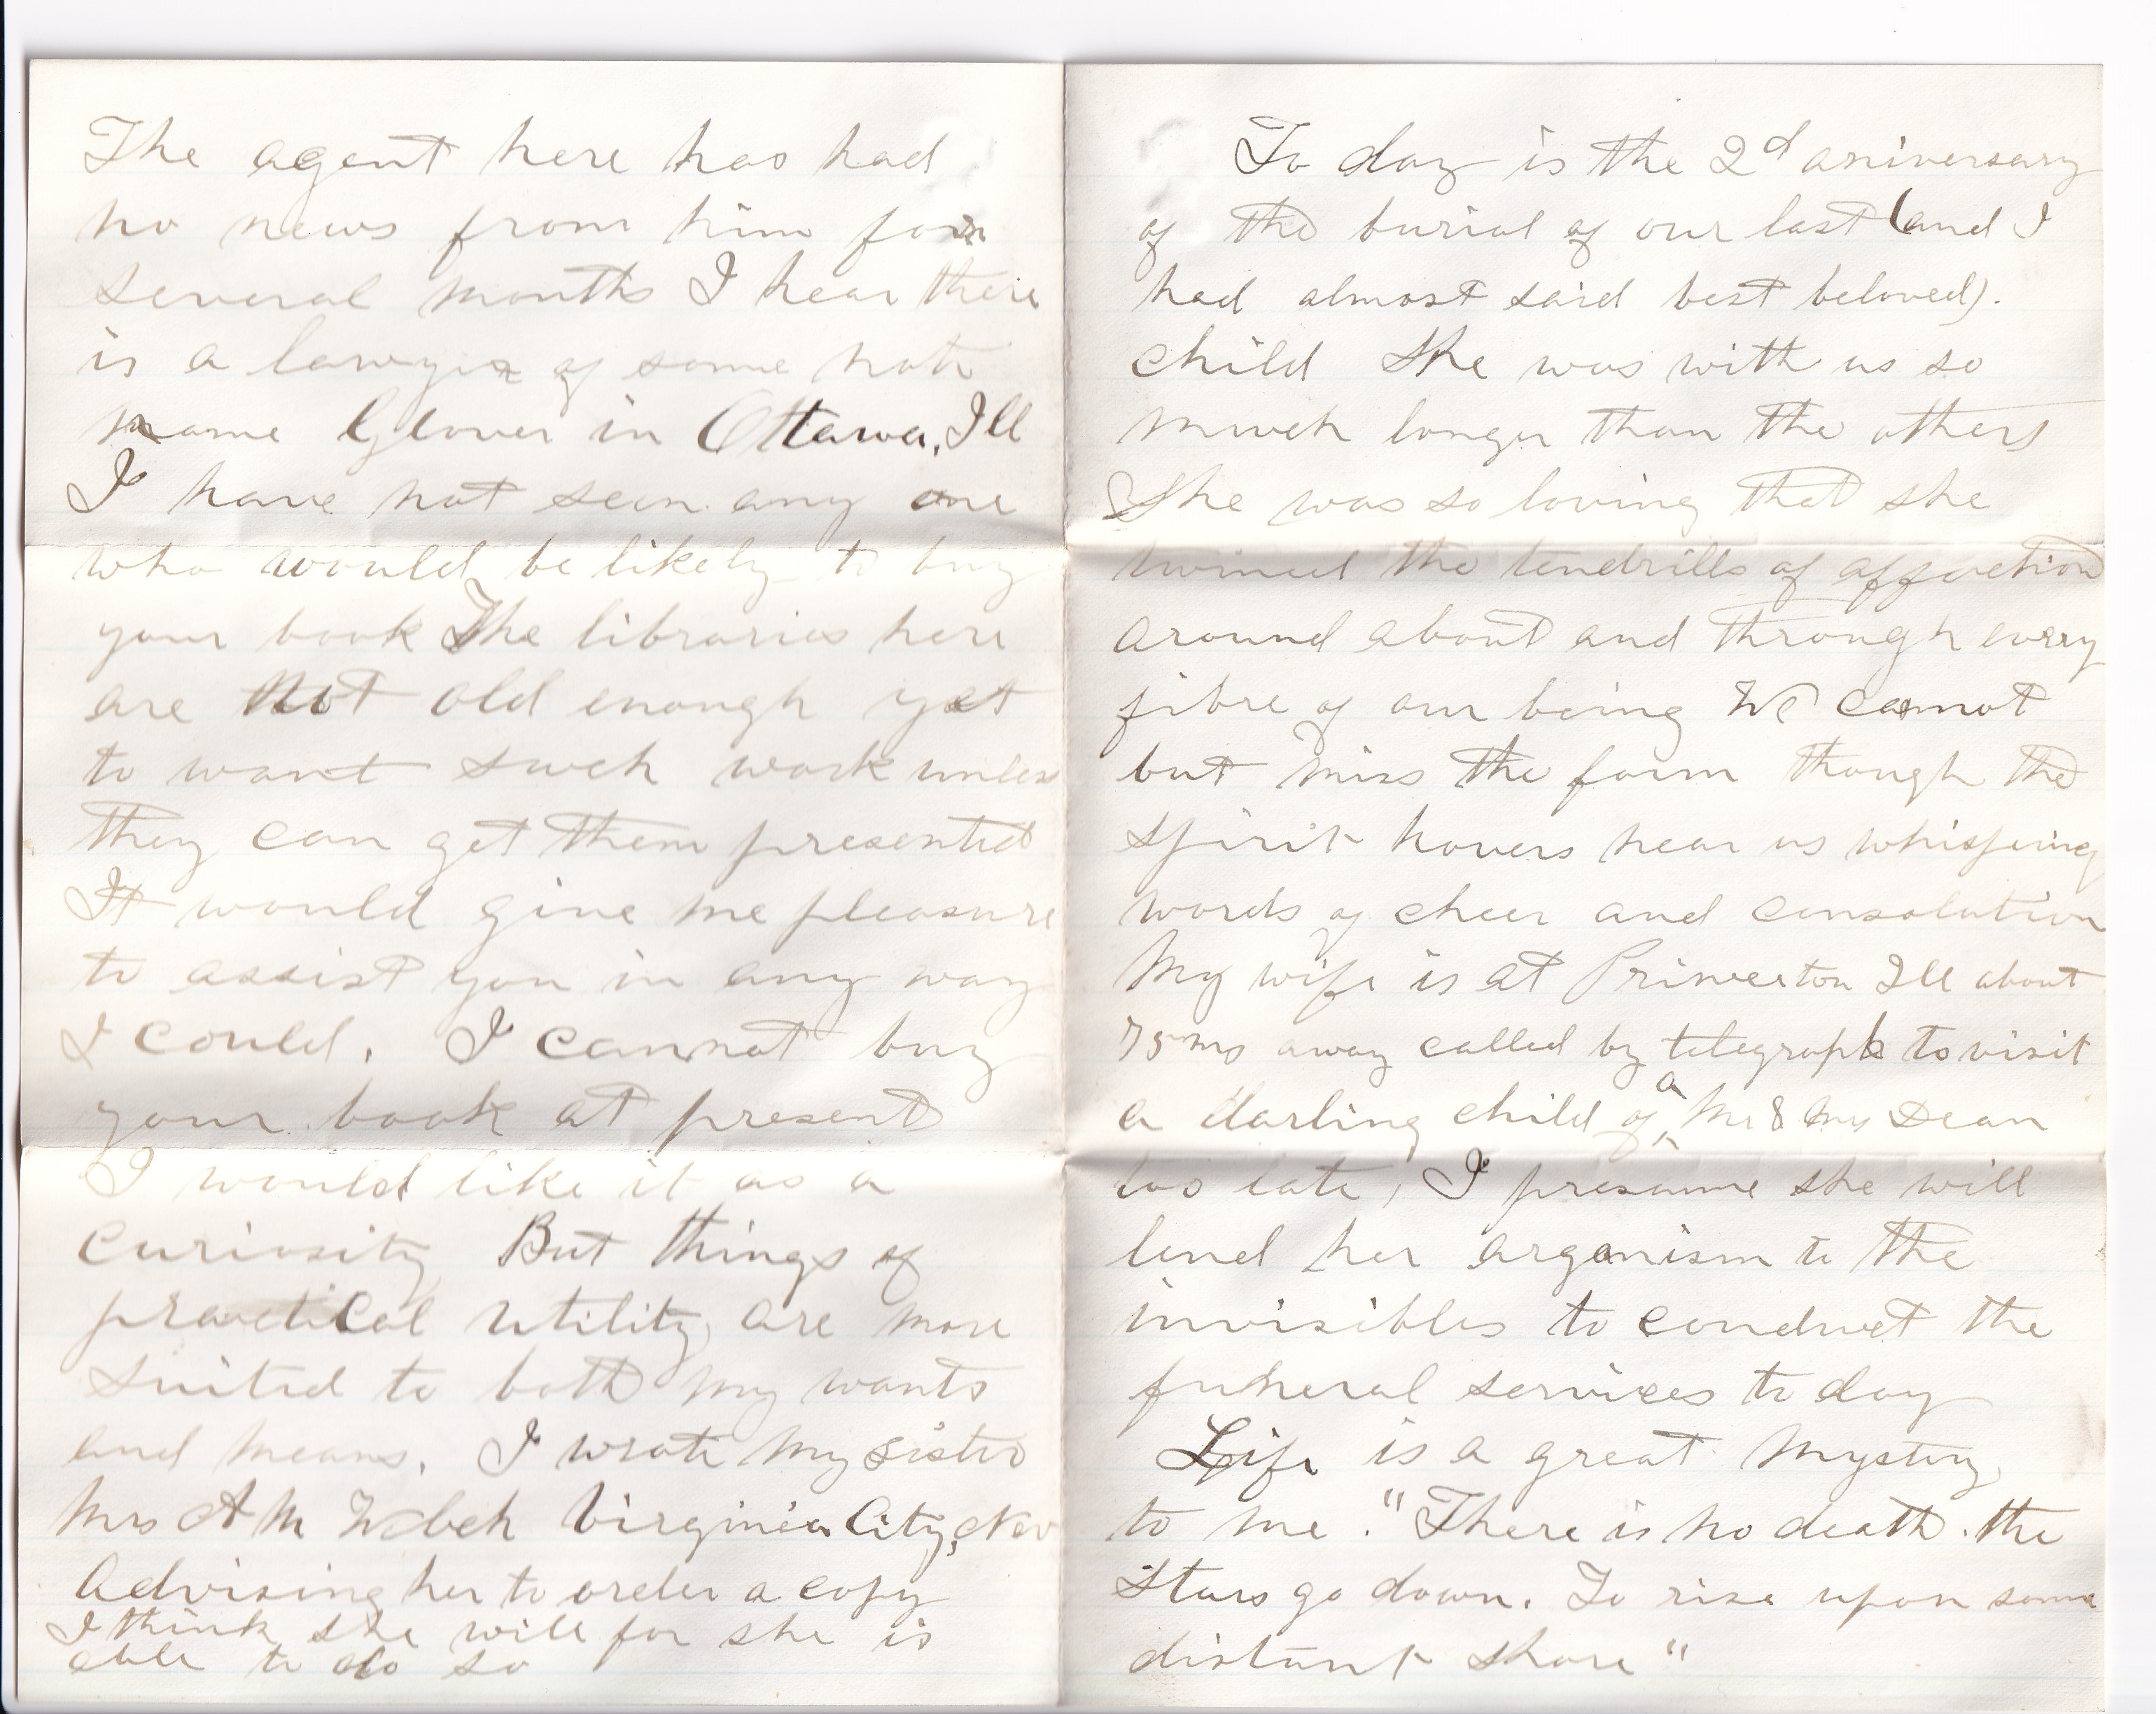 The agent here has had
no news from him for
several months I hear there
is a lawyer of some note
name Glover in Ottawa, Ill
I have not seen any one
who would be likely to buy
your book The libraries here
are not old enough yet
to want such work unless
they can get them presented
It would give me pleasure
to assist you in any way
I could. I cannot buy
your book at present
I would like it as a
curiosity But things of
practical utility are more
suited to both my wants
and means. I wrote my sister
Mrs A M Webch Virginia City, Nev
Advising her to order a copy
I think she will for she is
able to do so
To day is the 2d aniversary
of the burial of our last (and I
had almost said best beloved).
child She was with us so
much longer than the others
She was so loving that she
twined the tendrills of affection
around about and through every
fibre of our being We cannot
but miss the form though the
spirit hovers near us whispering
words of cheer and consolation
My wife is at Princeton Ill about
75 ms away called by telegraph to visit
a darling child of a Mr & Mrs Dean
too late, I presume she will
lend her organism to the
invisibles to conduct the
funeral services to day
Life is a great mystery
to me. "There is no death. the
Stars go down. To rise upon some
distant shore"